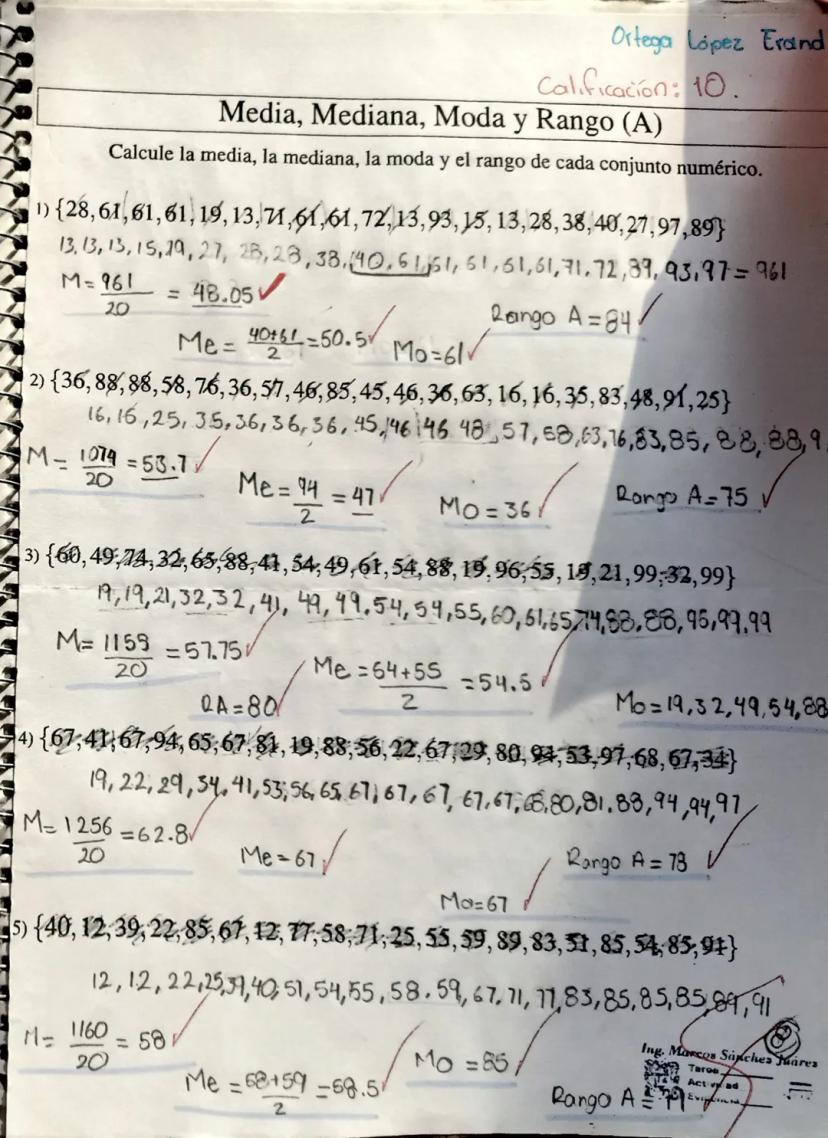 Ortega López Erand
Calificación: 10.
Media, Mediana, Moda y Rango (A)
Calcule la media, la mediana, la moda y el rango de cada conjunto numérico.
1) {28, 61, 61, 61, 19, 13, 71, 61, 61, 72, 13, 93, 15, 13, 28, 38, 40, 27, 97, 89}
13, 13, 13, 15, 19, 27, 28, 28, 38, 40, 61, 61, 61, 61, 61, 71, 72, 89, 93, 97 = 961
M = 961/20 = 48.05
Rango A = 84
Me = 40+61/2 = 50.5 Mo = 61
2) {36, 88, 88, 58, 76, 36, 57, 46, 85, 45, 46, 36, 63, 16, 16, 35, 83, 48, 91, 25}
16, 16, 25, 35, 36, 36, 36, 45, 46, 46 48, 57, 58, 63, 76, 83, 85, 88, 88, 9
M = 1074/20 = 53.7
Me = 94/2 = 47 Mo = 36 Rango A = 75
3) {60, 49, 74, 32, 65, 88, 41, 54, 49, 61, 54, 88, 19, 96, 55, 19, 21, 99, 32, 99}
19, 19, 21, 32, 32, 41, 49, 49, 54, 54, 55, 60, 61, 65, 74, 88, 88, 96, 99, 99
M = 1155/20 = 57.75
Me = 54+55/2 = 54.5
RA = 80 Mo = 19, 32, 49, 54, 88
4) {67, 41, 67, 94, 65, 67, 81, 19, 88, 56, 22, 67, 29, 80, 94, 53, 97, 68, 67, 34}
19, 22, 29, 34, 41, 53, 56, 65, 67, 67, 67, 67, 67, 68, 80, 81, 88, 94, 94, 97
M = 1256/20 = 62.8
Me = 67 Rango A = 78
Mo = 67
5) {40, 12, 39, 22, 85, 67, 12, 77, 58, 71, 25, 55, 59, 89, 83, 51, 85, 54, 85, 91}
12, 12, 22, 25, 39, 40, 51, 54, 55, 58, 59, 67, 71, 77, 83, 85, 85, 85, 89, 91
M = 1160/20 = 58
Me = 58+59/2 = 58.5 Mo = 85
Rango A = 79
Ing. Marcos Sánchez Juárez
Tarea
Actividad
Evidencia